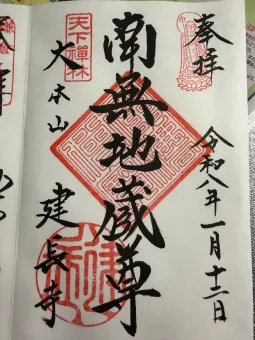 奉拝
令和八年一月十二日
南無地蔵尊
天下禅林
大本山
建長寺